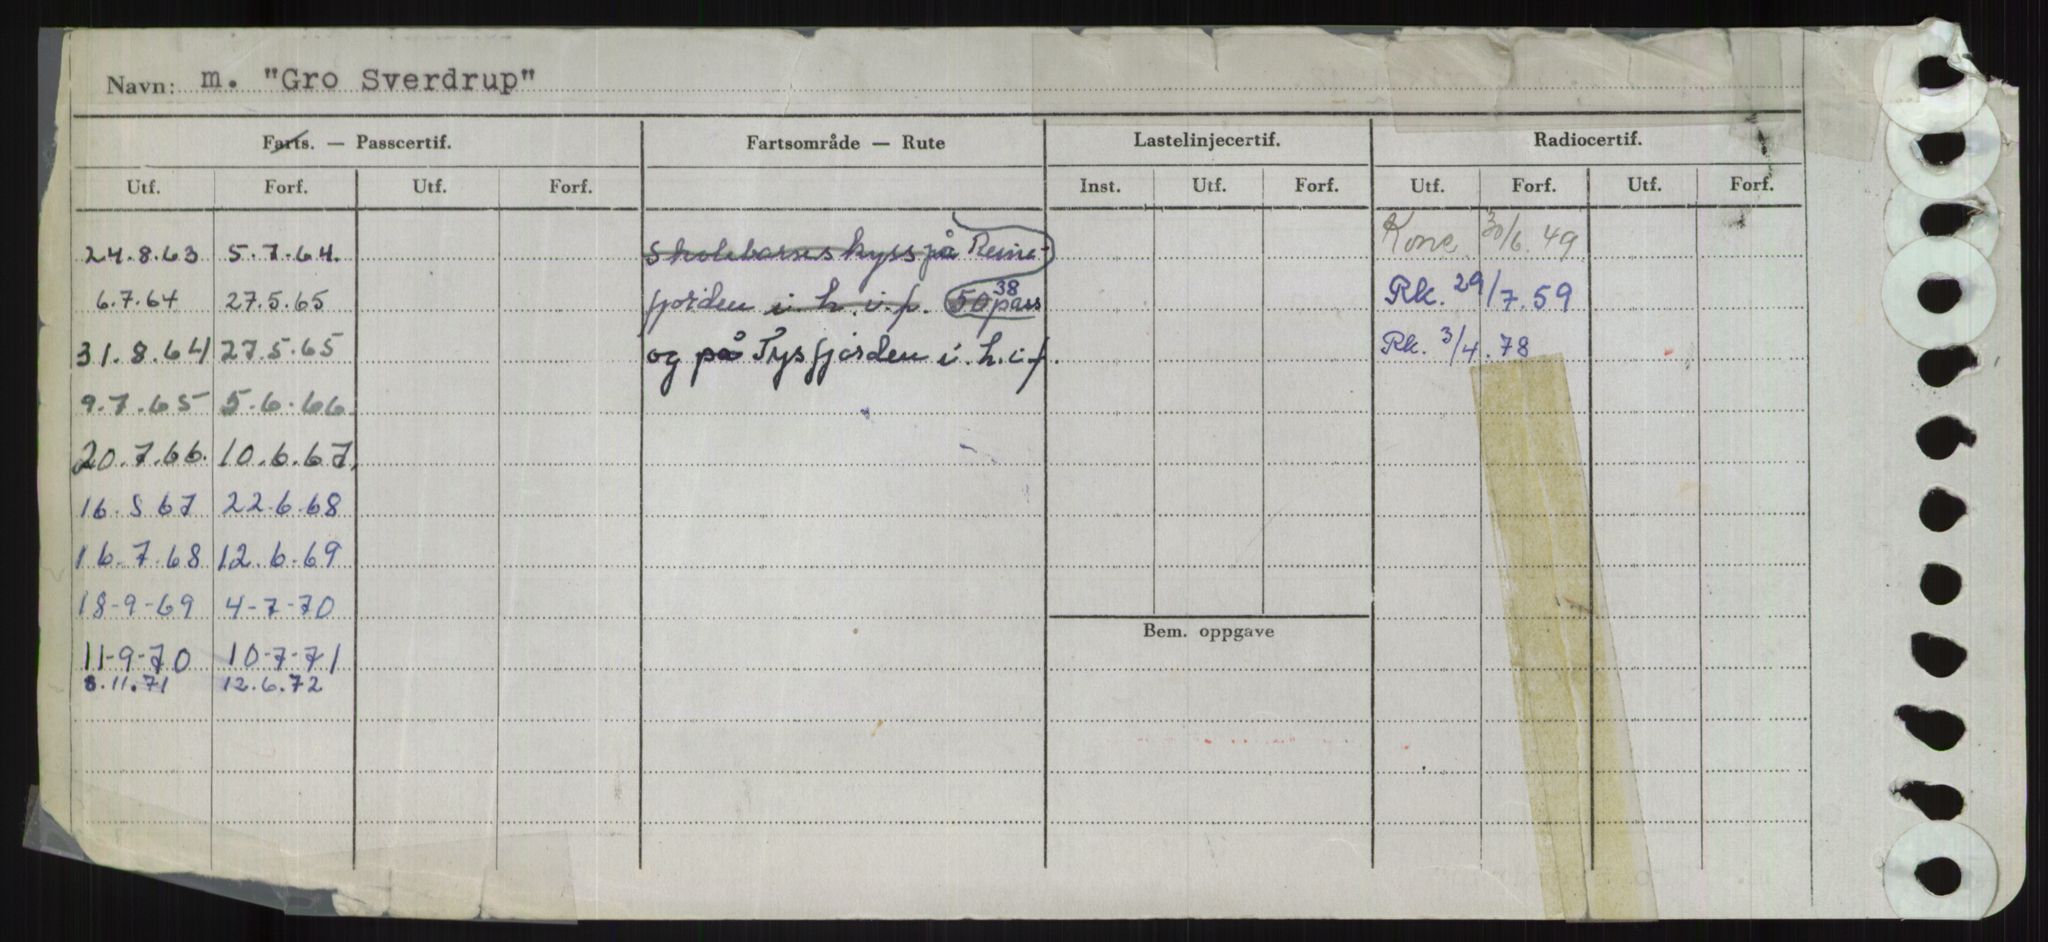 Navn: m. "Gro Sverdrup"
Farts. — Passcertif. Fartsområde — Rute Lastelinjecertif. Radiocertif.
Utf. Forf. Utf. Forf. Inst. Utf. Forf. Utf. Forf. Utf. Forf.
24.8.63 5.7.64. Skolebarnsskyss på Reine- Konc. 30/6.49
6.7.64 27.5.65 fjorden i h.i.f. 50 38 pass Rk. 29/7.59
31.8.64 27.5.65 og på Tysfjorden i h.i.f. Rk. 3/4.78
9.7.65 5.6.66
20.7.66. 10.6.67.
16.8 67 22.6.68
16.7.68 12.6.69
18-9-69 4-7-70
11-9-70 10-7-71
8.11.71 12.6.72
Bem. oppgave